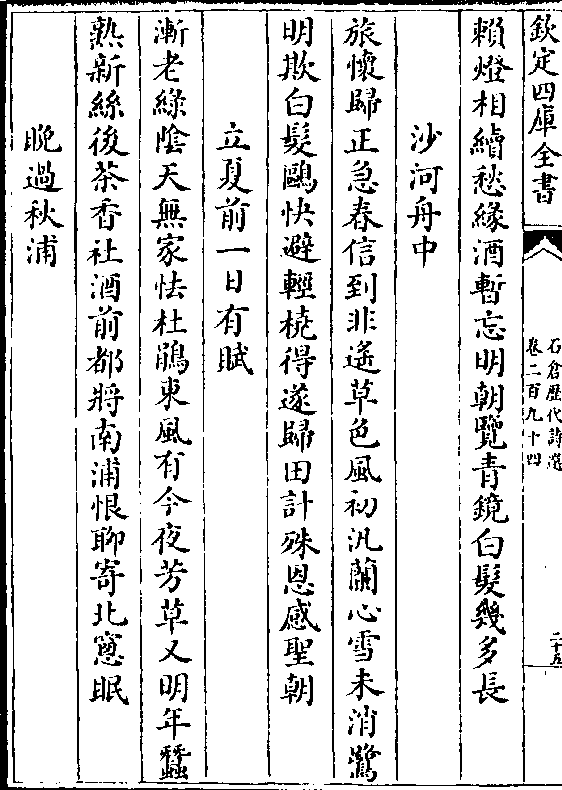 欽定四庫全書
石倉歷代詩選
卷二百九十四
二十五
賴燈相續愁緣酒暫忘明朝覽青鏡白髮幾多長
沙河舟中
旅懷歸正急春信到非遙草色風初汎蘭心雪未消鷺
明欺白髮鷗快避輕橈得遂歸田計殊恩感聖朝
立夏前一日有賦
漸老綠陰天無家怯杜鵑東風有今夜芳草又明年蠶
熟新絲後茶香社酒前都將南浦恨聊寄北窻眠
晚過秋浦